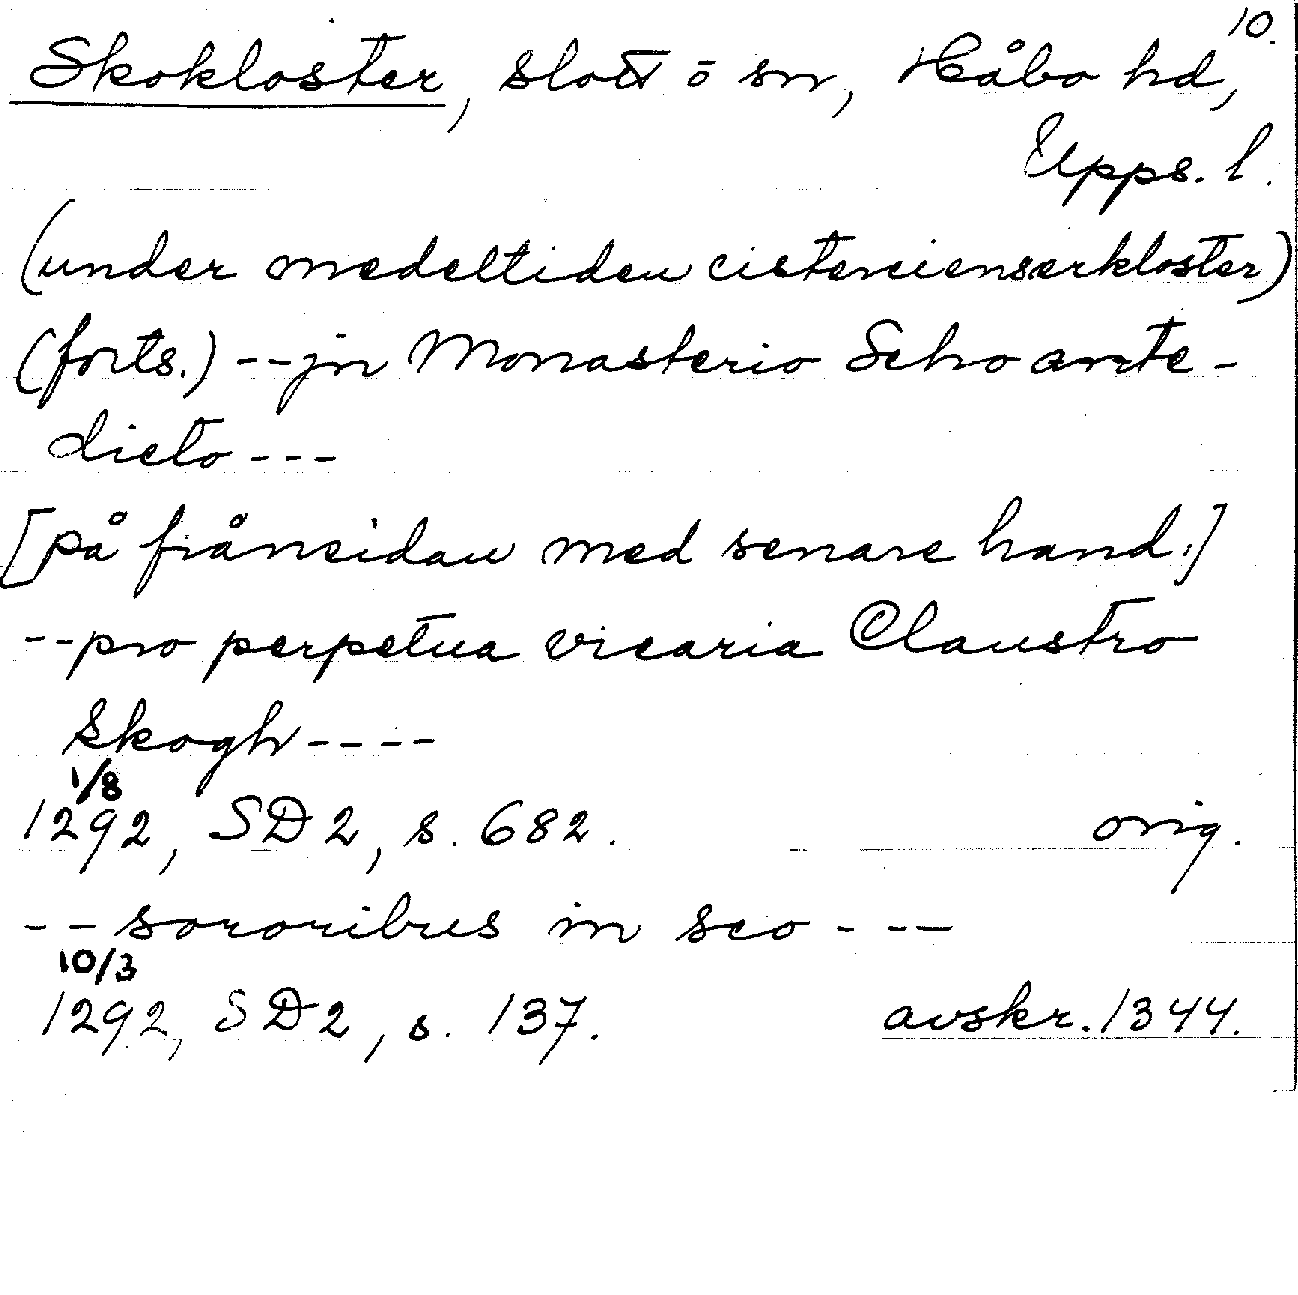 10.
Skokloster, slott o sn, Håbo hd,
Upps. l.
(under medeltiden cistercienserkloster)
(forts.) -- jn Monasterio Scho ante-
dicto ---
[på frånsidan med senare hand:]
-- pro perpetua vicaria Claustro
Skogh ----
1/8
1292, SD 2, s. 682. orig.
-- sororibus in sco ---
10/3
1292, SD 2, s. 137. avskr. 1344.